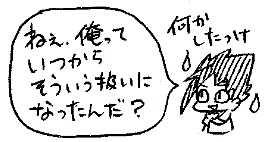 ねぇ、俺って
いつから
そういう扱いに
なったんだ？
何か
したっけ